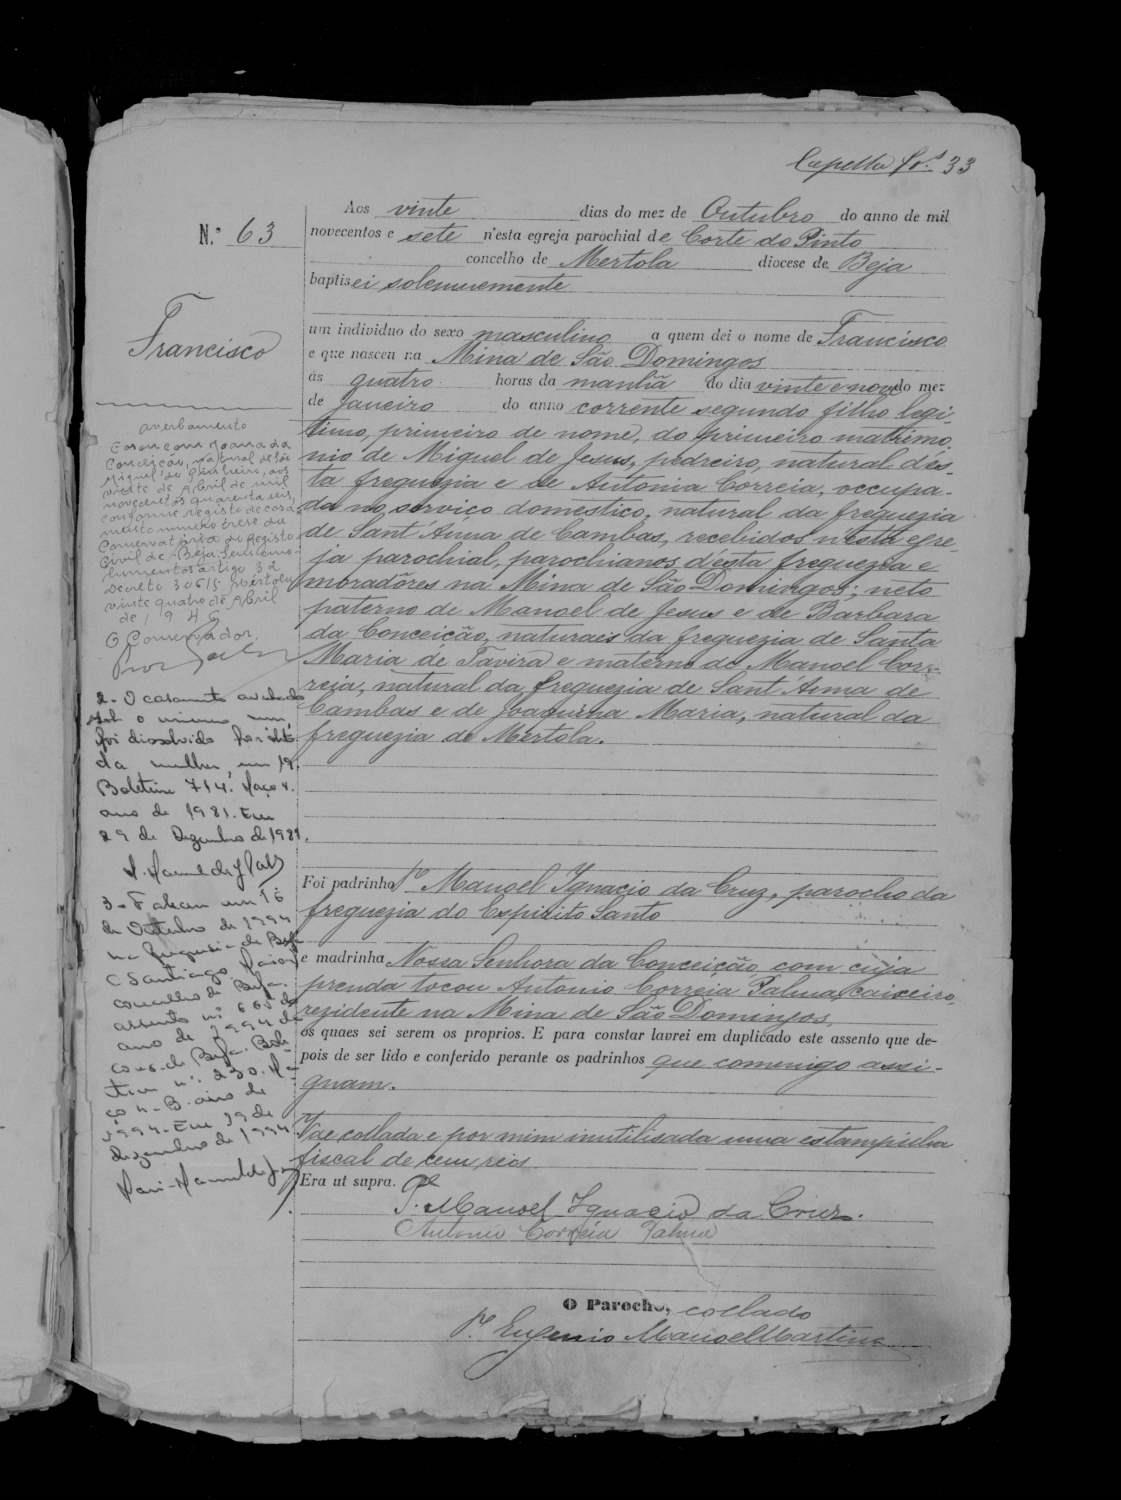 Capella fls 33
N.º 63
Francisco
Aos vinte dias do mez de Outubro do anno de mil
novecentos e sete n'esta egreja parochial de Corte do Pinto
concelho de Mertola diocese de Beja
baptisei solemnemente
um individuo do sexo masculino a quem dei o nome de Francisco
e que nasceu na Mina de São Domingos
ás quatro horas da manhã do dia vinte e nove do mez
de Janeiro do anno corrente segundo filho legi-
timo, primeiro de nome, do primeiro matrimo-
nio de Miguel de Jesus, pedreiro, natural d'es-
ta freguezia e de Antonia Correia, occupa-
da no serviço domestico, natural da freguezia
de Sant'Anna de Cambas, recebidos n'esta egre-
ja parochial, parochianos d'esta freguezia e
moradôres na Mina de São Domingos; neto
paterno de Manoel de Jesus e de Barbara
da Conceição, naturais da freguezia de Santa
Maria de Tavira e materno de Manoel Cor-
reia, natural da freguezia de Sant'Anna de
Cambas e de Joaquina Maria, natural da
freguezia de Mertola.
Foi padrinho Pe Manoel Ignacio da Cruz, parocho da
freguezia do Espirito Santo
e madrinha Nossa Senhora da Conceição com cuja
prenda tocou Antonio Correia Palma, caixeiro,
rezidente na Mina de São Domingos,
os quaes sei serem os proprios. E para constar lavrei em duplicado este assento que de-
pois de ser lido e conferido perante os padrinhos que commigo assi-
gnam.
Vae collada e por mim inutilisada uma estampilha
fiscal de cem reis
Era ut supra.
Pe Manoel Ignacio da Cruz.
Antonio Correia Palma
O Parocho, collado
Pe Eugenio Manoel Martins
averbamento
Casou com Joana da
Conceição, natural de São
Miguel do Pinheiro, aos
vinte de Abril de mil
novecentos quarenta seis,
conforme registo de casa-
mento numero treze da
Conservatória do Registo
Civil de Beja. Sem emo-
lumentos artigo 32
decreto 30615. Mértola,
vinte quatro de Abril
de 1946
O Conservador,
2- O casamento averbado
sob o numero um,
foi dissolvido por óbito
da mulher, em 19.
Boletim 714. Maço 4.
ano de 1981. Em
29 de Dezembro de 1981.
3- Faleceu em 16
de Outubro de 1994
na freguesia de Beja
(Santiago Maior)
concelho de Beja.
assento nº 605 do
ano de 1994 da
cons. de Beja. Bole-
tim nº. 230. Ma-
ço 4-B. ano de
1994. Em 19 de
dezembro de 1994